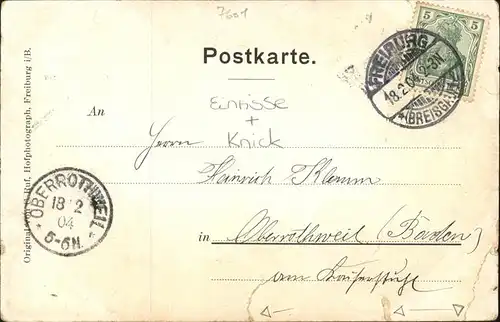 7601
5
5
Postkarte.
FREIBURG
18.2.04 2-3N.
*(BREISGAU)
Einrisse
+
Knick
An
Herrn
Heinrich Klemm
in Oberrothweil (Baden)
am Kaiserstuhl
OBERROTHWEIL
18 2
04
5-6N.
Hofphotograph, Freiburg i/B.